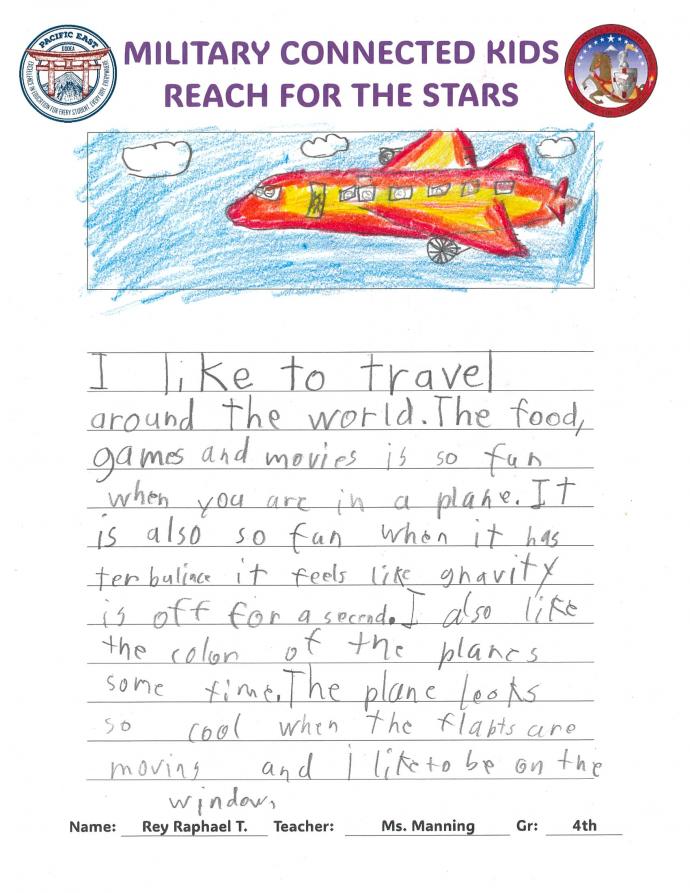 PACIFIC EAST
DODEA
EXCELLENCE IN EDUCATION FOR EVERY STUDENT, EVERY DAY, EVERYWHERE
MILITARY CONNECTED KIDS
REACH FOR THE STARS
I like to travel
around the world. The food,
games and movies is so fun
when you are in a plane. It
is also so fun when it has
terbulince it feels like ghavity
is off for a second. I also like
the colon of the planes
some time. The plane looks
so cool when the flabts are
moving and I like to be on the
window,
Name: Rey Raphael T. Teacher: Ms. Manning Gr: 4th